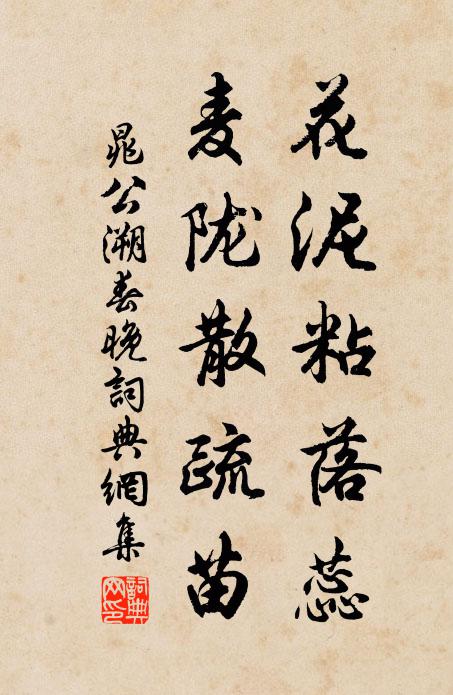 花泥粘落蕊
麦陇散疏苗
晁公溯春晚詞典網集
詞典网印